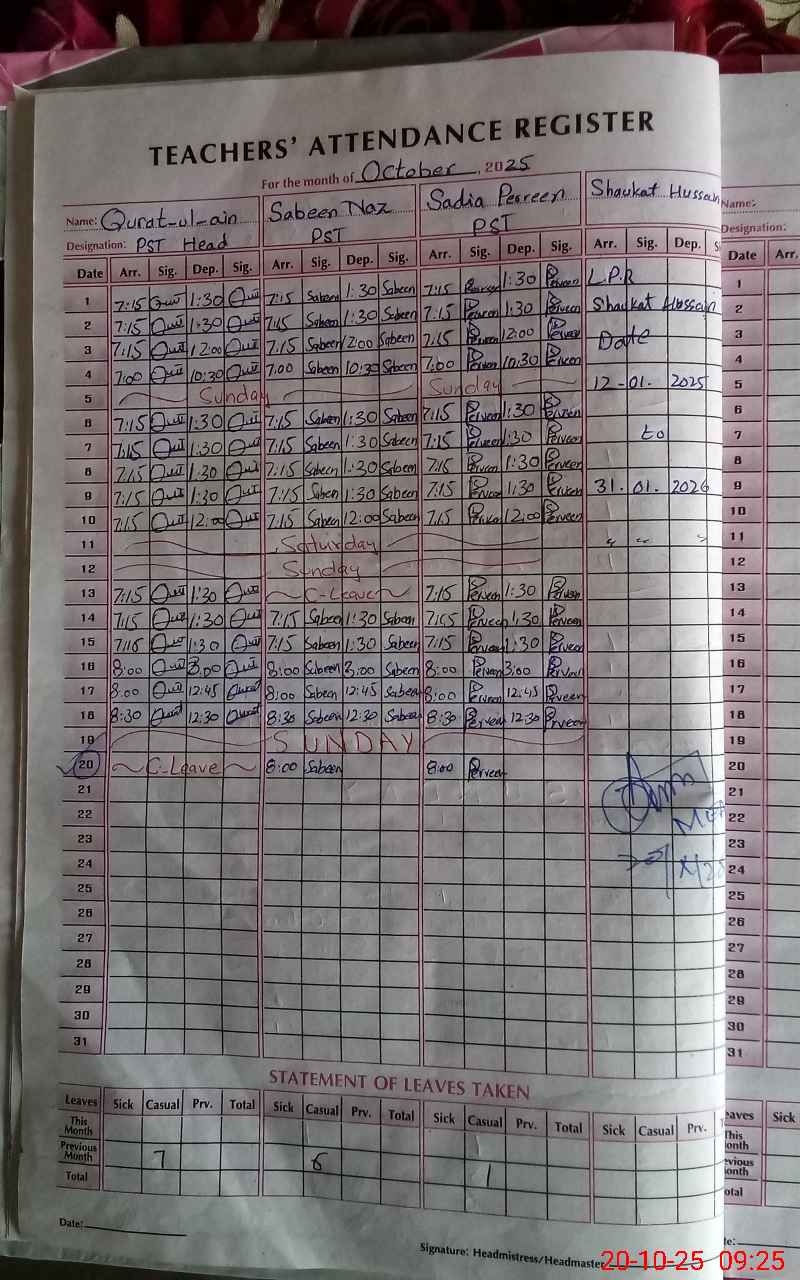 TEACHERS' ATTENDANCE REGISTER
For the month of October, 2025
Name: Qurat-ul-ain Sabeen Naz Sadia Perveen Shaukat Hussain Name:
Designation: PST Head PST PST Designation:
Date Arr. Sig. Dep. Sig. Arr. Sig. Dep. Sig. Arr. Sig. Dep. Sig. Arr. Sig. Dep. S Date Arr.
1 7:15 Qurat 1:30 Qurat 7:15 Sabeen 1:30 Sabeen 7:15 Perveen 1:30 Perveen L.P.R 1
2 7:15 Qurat 1:30 Qurat 7:15 Sabeen 1:30 Sabeen 7:15 Perveen 1:30 Perveen Shaukat Hussain 2
3 7:15 Qurat 12:00 Qurat 7:15 Sabeen 12:00 Sabeen 7:15 Perveen 12:00 Perveen Date 3
4 7:00 Qurat 10:30 Qurat 7:00 Sabeen 10:30 Sabeen 7:00 Perveen 10:30 Perveen 4
5 Sunday Sunday 12-01. 2025 5
6 7:15 Qurat 1:30 Qurat 7:15 Sabeen 1:30 Sabeen 7:15 Perveen 1:30 Perveen 6
7 7:15 Qurat 1:30 Qurat 7:15 Sabeen 1:30 Sabeen 7:15 Perveen 1:30 Perveen to 7
8 7:15 Qurat 1:30 Qurat 7:15 Sabeen 1:30 Sabeen 7:15 Perveen 1:30 Perveen 8
9 7:15 Qurat 1:30 Qurat 7:15 Sabeen 1:30 Sabeen 7:15 Perveen 1:30 Perveen 31. 01. 2026 9
10 7:15 Qurat 12:00 Qurat 7:15 Sabeen 12:00 Sabeen 7:15 Perveen 12:00 Perveen 10
11 Saturday 11
12 Sunday 12
13 7:15 Qurat 1:30 Qurat C-Leave 7:15 Perveen 1:30 Perveen 13
14 7:15 Qurat 1:30 Qurat 7:15 Sabeen 1:30 Sabeen 7:15 Perveen 1:30 Perveen 14
15 7:15 Qurat 1:30 Qurat 7:15 Sabeen 1:30 Sabeen 7:15 Perveen 1:30 Perveen 15
16 8:00 Qurat 3:00 Qurat 8:00 Sabeen 3:00 Sabeen 8:00 Perveen 3:00 Perveen 16
17 8:00 Qurat 12:45 Qurat 8:00 Sabeen 12:45 Sabeen 8:00 Perveen 12:45 Perveen 17
18 8:30 Qurat 12:30 Qurat 8:30 Sabeen 12:30 Sabeen 8:30 Perveen 12:30 Perveen 18
19 SUNDAY 19
20 C-Leave 8:00 Sabeen 8:00 Perveen 20
21 21
22 22
23 23
24 24
25 25
26 26
27 27
28 28
29 29
30 30
31 31
STATEMENT OF LEAVES TAKEN
Leaves Sick Casual Prv. Total Sick Casual Prv. Total Sick Casual Prv. Total Sick Casual Prv. eaves Sick
This Month This onth
Previous Month 7 6 1 vious onth
Total otal
Date:
Signature: Headmistress/Headmaster
20-10-25 09:25